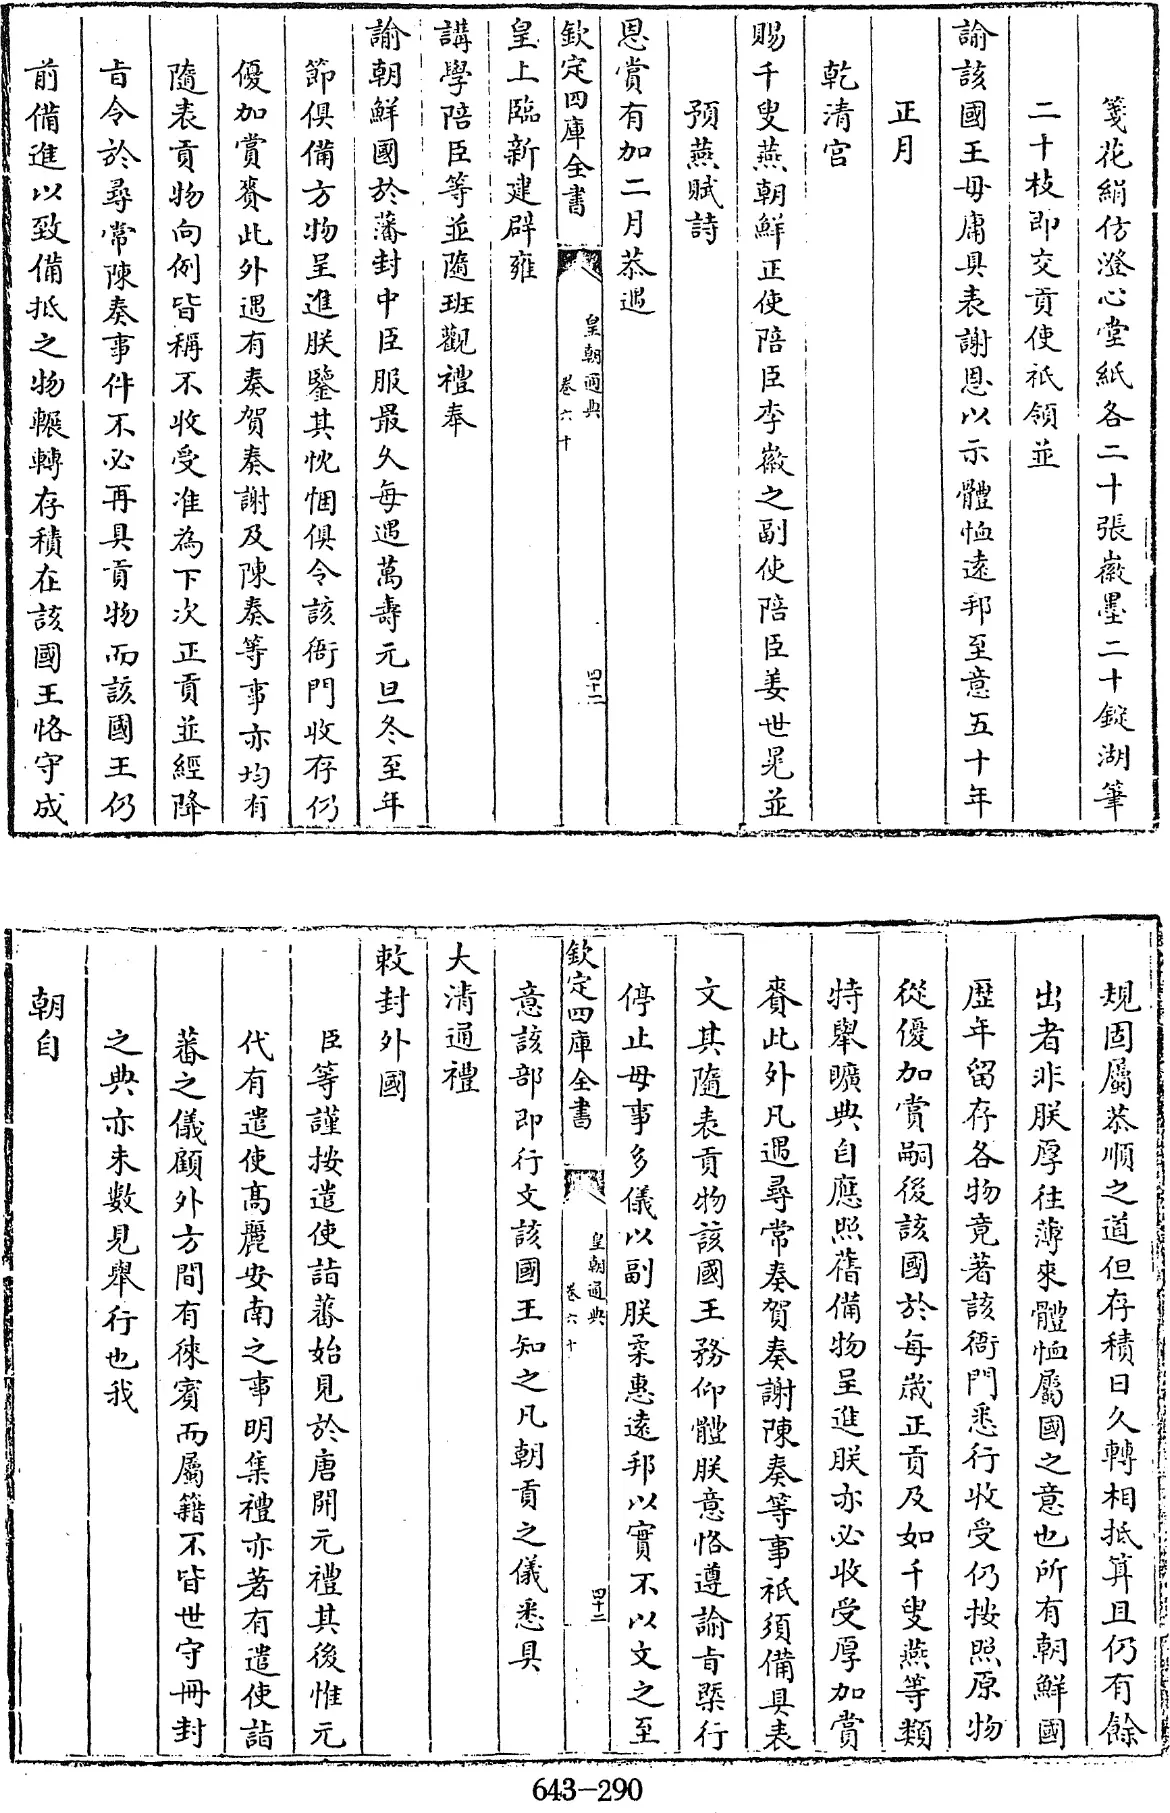 箋花絹仿澄心堂紙各二十張徽墨二十錠湖筆
二十枝即交貢使祇領並
諭該國王毋庸具表謝恩以示體恤遠邦至意五十年
正月
乾清宮
賜千叟燕朝鮮正使陪臣李徽之副使陪臣姜世晃並
預燕賦詩
恩賞有加二月恭遇
欽定四庫全書
皇朝通典
卷六十
四十二
皇上臨新建辟雍
講學陪臣等並隨班觀禮奉
諭朝鮮國於藩封中臣服最久每遇萬壽元旦冬至年
節俱備方物呈進朕鑒其忱悃俱令該衙門收存仍
優加賞賚此外遇有奏賀奏謝及陳奏等事亦均有
隨表貢物向例皆稱不收受准為下次正貢並經降
㫖令於尋常陳奏事件不必再具貢物而該國王仍
前備進以致備抵之物輾轉存積在該國王恪守成
規固屬恭順之道但存積日久轉相抵算且仍有餘
出者非朕厚往薄來體恤屬國之意也所有朝鮮國
歴年留存各物竟著該衙門悉行收受仍按照原物
從優加賞嗣後該國於每歲正貢及如千叟燕等類
特舉曠典自應照舊備物呈進朕亦必收受厚加賞
賚此外凡遇尋常奏賀奏謝陳奏等事祇須備具表
文其隨表貢物該國王務仰體朕意恪遵諭㫖槩行
停止毋事多儀以副朕柔惠遠邦以實不以文之至
欽定四庫全書
皇朝通典
卷六十
四十二
意該部即行文該國王知之凡朝貢之儀悉具
大清通禮
敕封外國
臣等謹按遣使詣蕃始見於唐開元禮其後惟元
代有遣使高麗安南之事明集禮亦著有遣使詣
蕃之儀顧外方間有徠賓而屬籍不皆世守冊封
之典亦未數見舉行也我
朝自
643-290